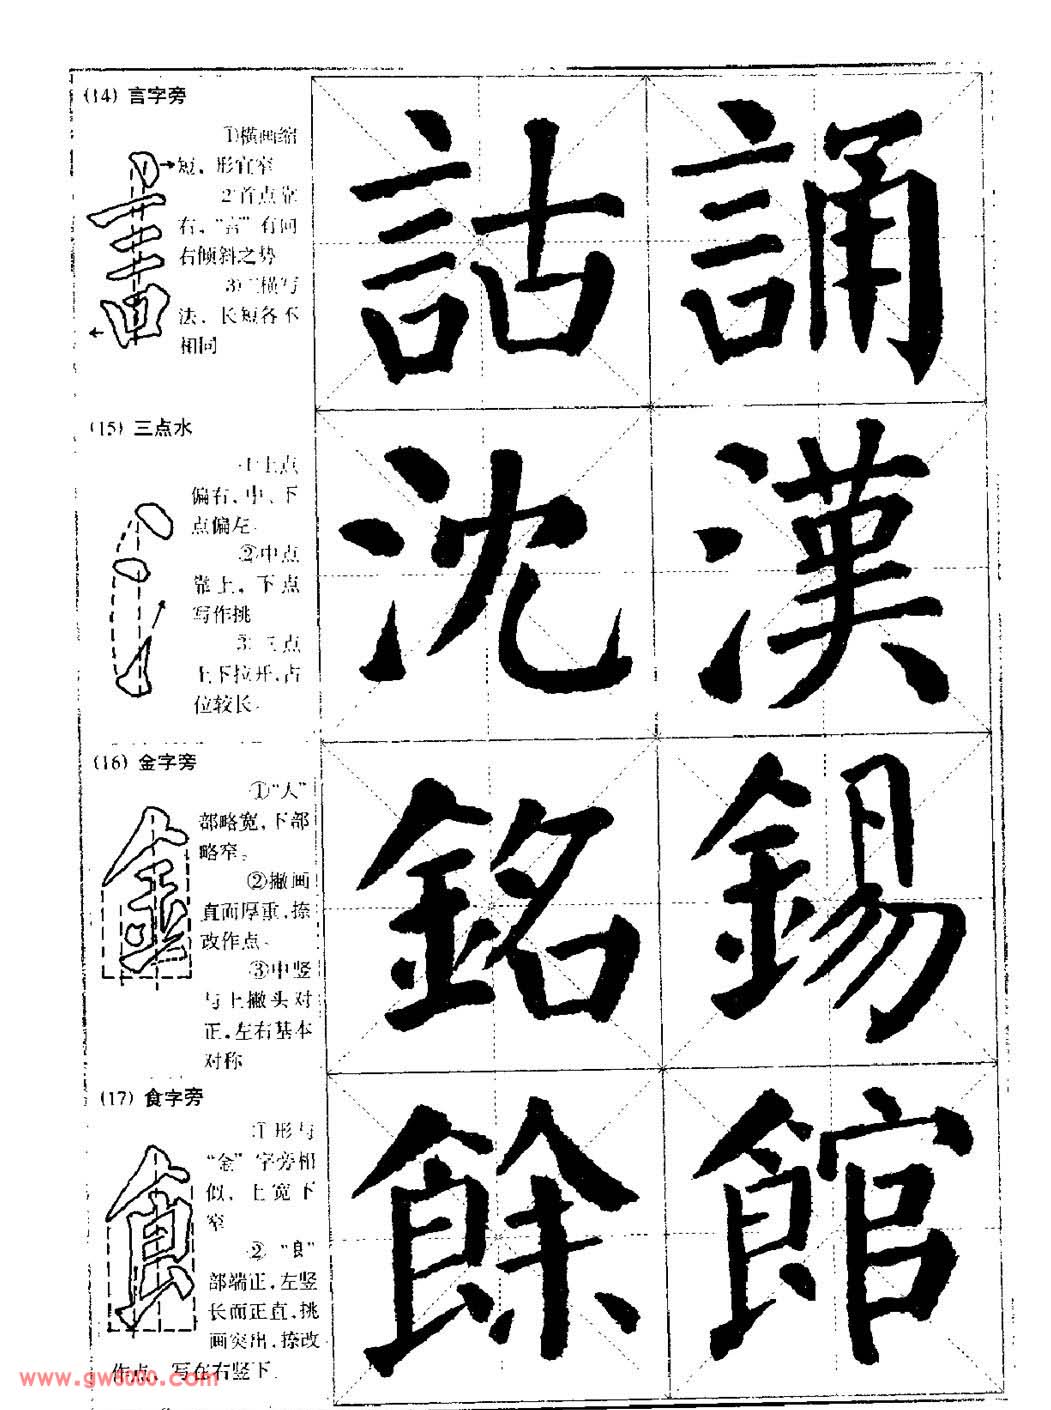 (14) 言字旁
①横画缩
短，形宜窄
②首点靠
右，“言”有向
右倾斜之势
③横写
法，长短各不
相同
詁 誦
(15) 三点水
①上点
偏右，中、下
点偏左。
②中点
靠上，下点
写作挑
③三点
上下拉开，占
位较长。
沈 漢
(16) 金字旁
①“人”
部略宽，下部
略窄。
②撇画
直而厚重，捺
改作点。
③中竖
与上撇头对
正，左右基本
对称
銘 錫
(17) 食字旁
①形与
“金”字旁相
似，上宽下
窄
②“良”
部端正，左竖
长而正直，挑
画突出，捺改
作点，写在右竖下
餘 館
www.gw8080.com